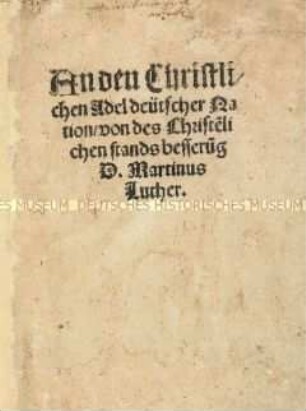 An den Christli/
chen Adel deütscher Na
tion/von des Christẽli
chen stands besserũg
D. Martinus
Luther.
MUSEUM DEUTSCHES HISTORISCHES MUSEUM